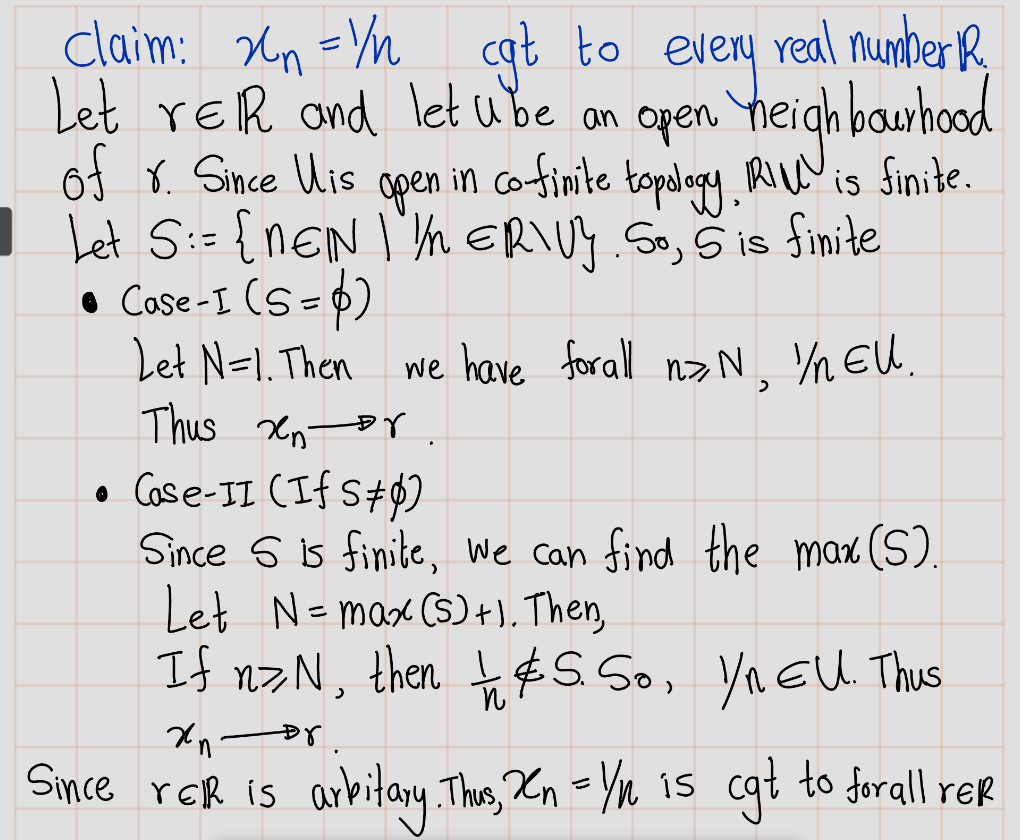 Claim: xₙ = 1/n cgt to every real number ℝ.
Let r∈ℝ and let U be an open neighbourhood
of r. Since U is open in co-finite topology, ℝ\U is finite.
Let S:= {n∈ℕ | 1/n ∈ℝ\U}. So, S is finite
• Case-I (S=ϕ)
Let N=1. Then we have forall n⩾N, 1/n ∈U.
Thus xₙ → r.
• Case-II (If S≠ϕ)
Since S is finite, we can find the max(S).
Let N = max(S)+1. Then,
If n⩾N, then 1/n ∉ S. So, 1/n ∈U. Thus
xₙ → r.
Since r∈ℝ is arbitary. Thus, xₙ = 1/n is cgt to forall r∈ℝ